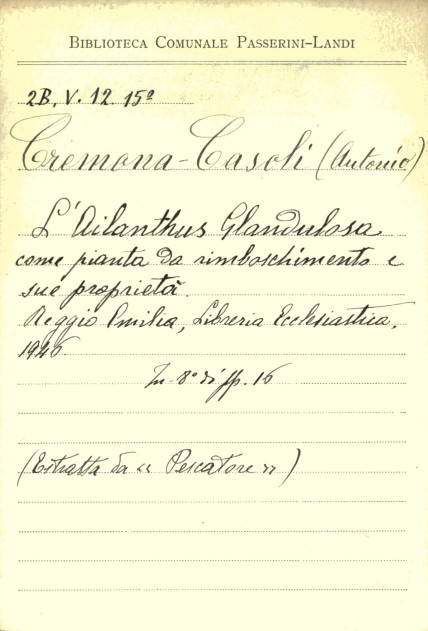 BIBLIOTECA COMUNALE PASSERINI-LANDI
2B. V. 12. 15ª
Cremona-Casoli (Antonio)
L'Ailanthus Glandulosa
come pianta da rimboschimento e
sue proprietà.
Reggio Emilia, Libreria Ecclesiastica,
1926.
In-8° di pp. 16
(Estratta da « Pescatore »)